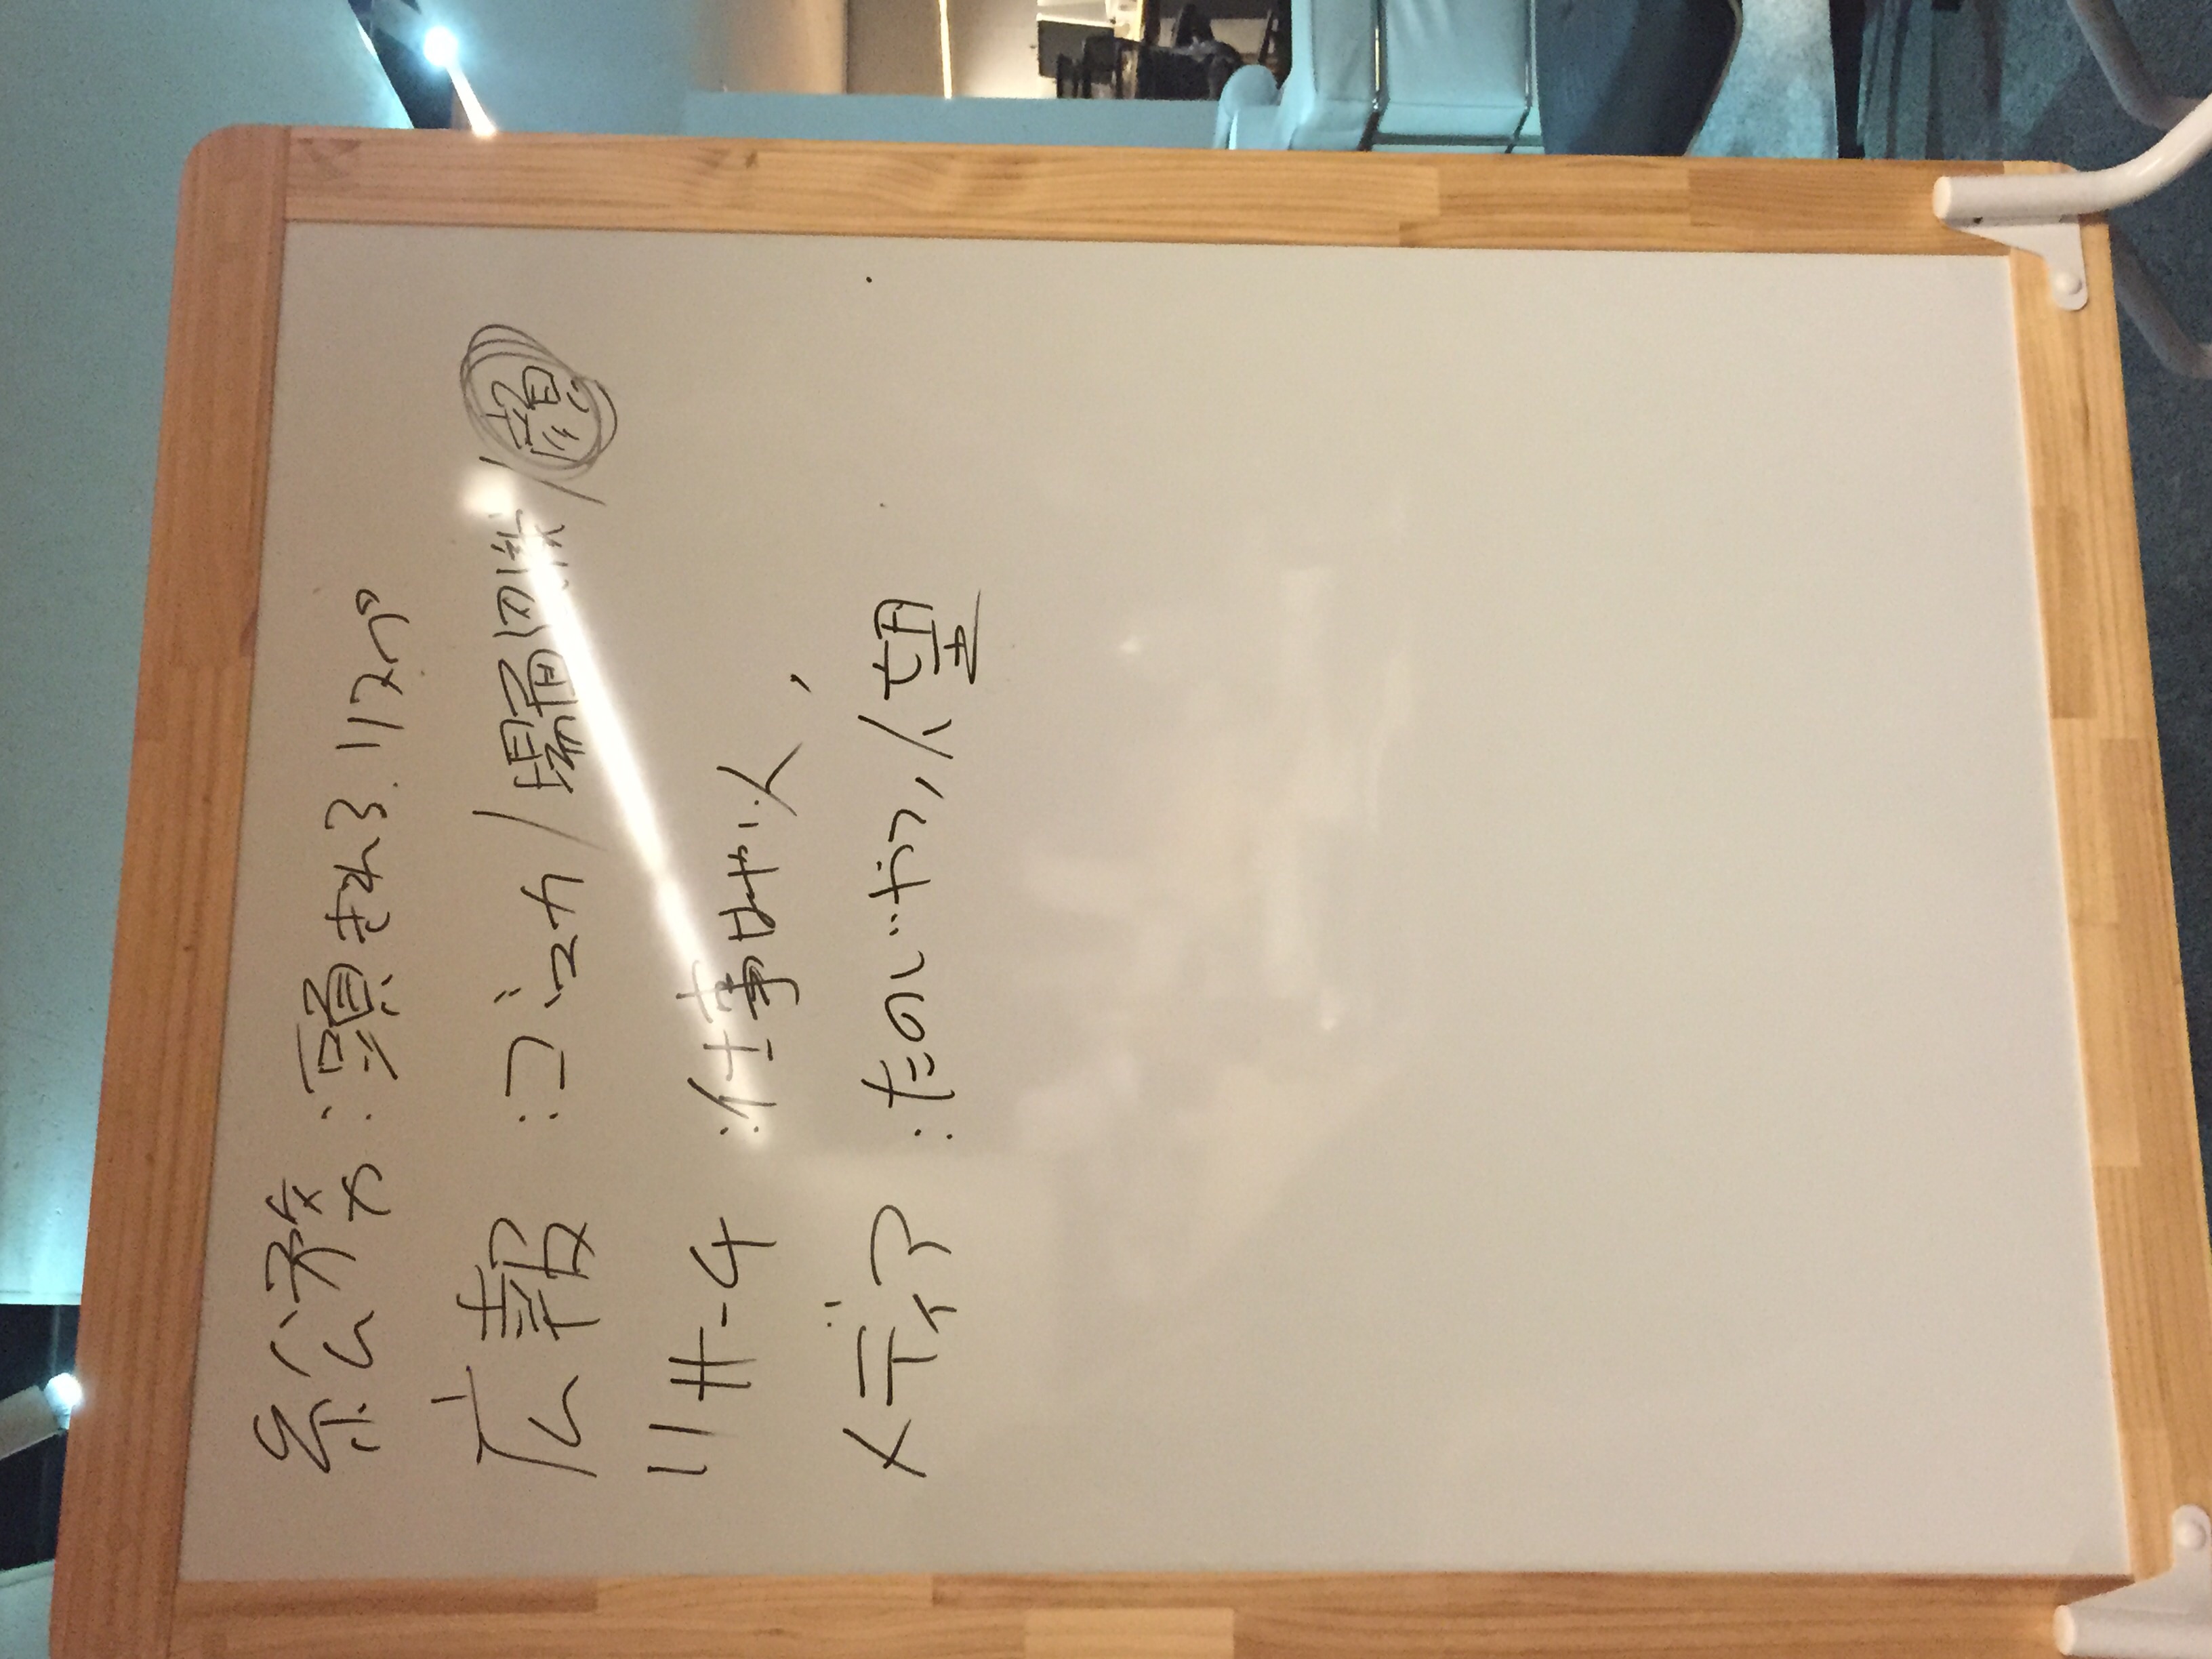 総務：頭きれる、リスペ
広報：コミュ力/場面認識/顔
リサーチ：仕事はやい人，
メディア：たのしいやつ，人望